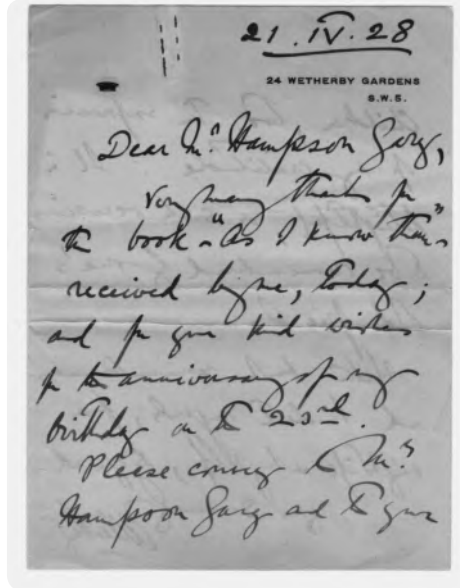 21.IV.28
24 WETHERBY GARDENS
S.W.5.
Dear Mr. Hampson Gary,
Very many thanks for
the book - "As I know them" -
received by me, today;
and for your kind wishes
for the anniversary of my
birthday on the 23rd.
Please convey to Mrs.
Hampson Gary and to your